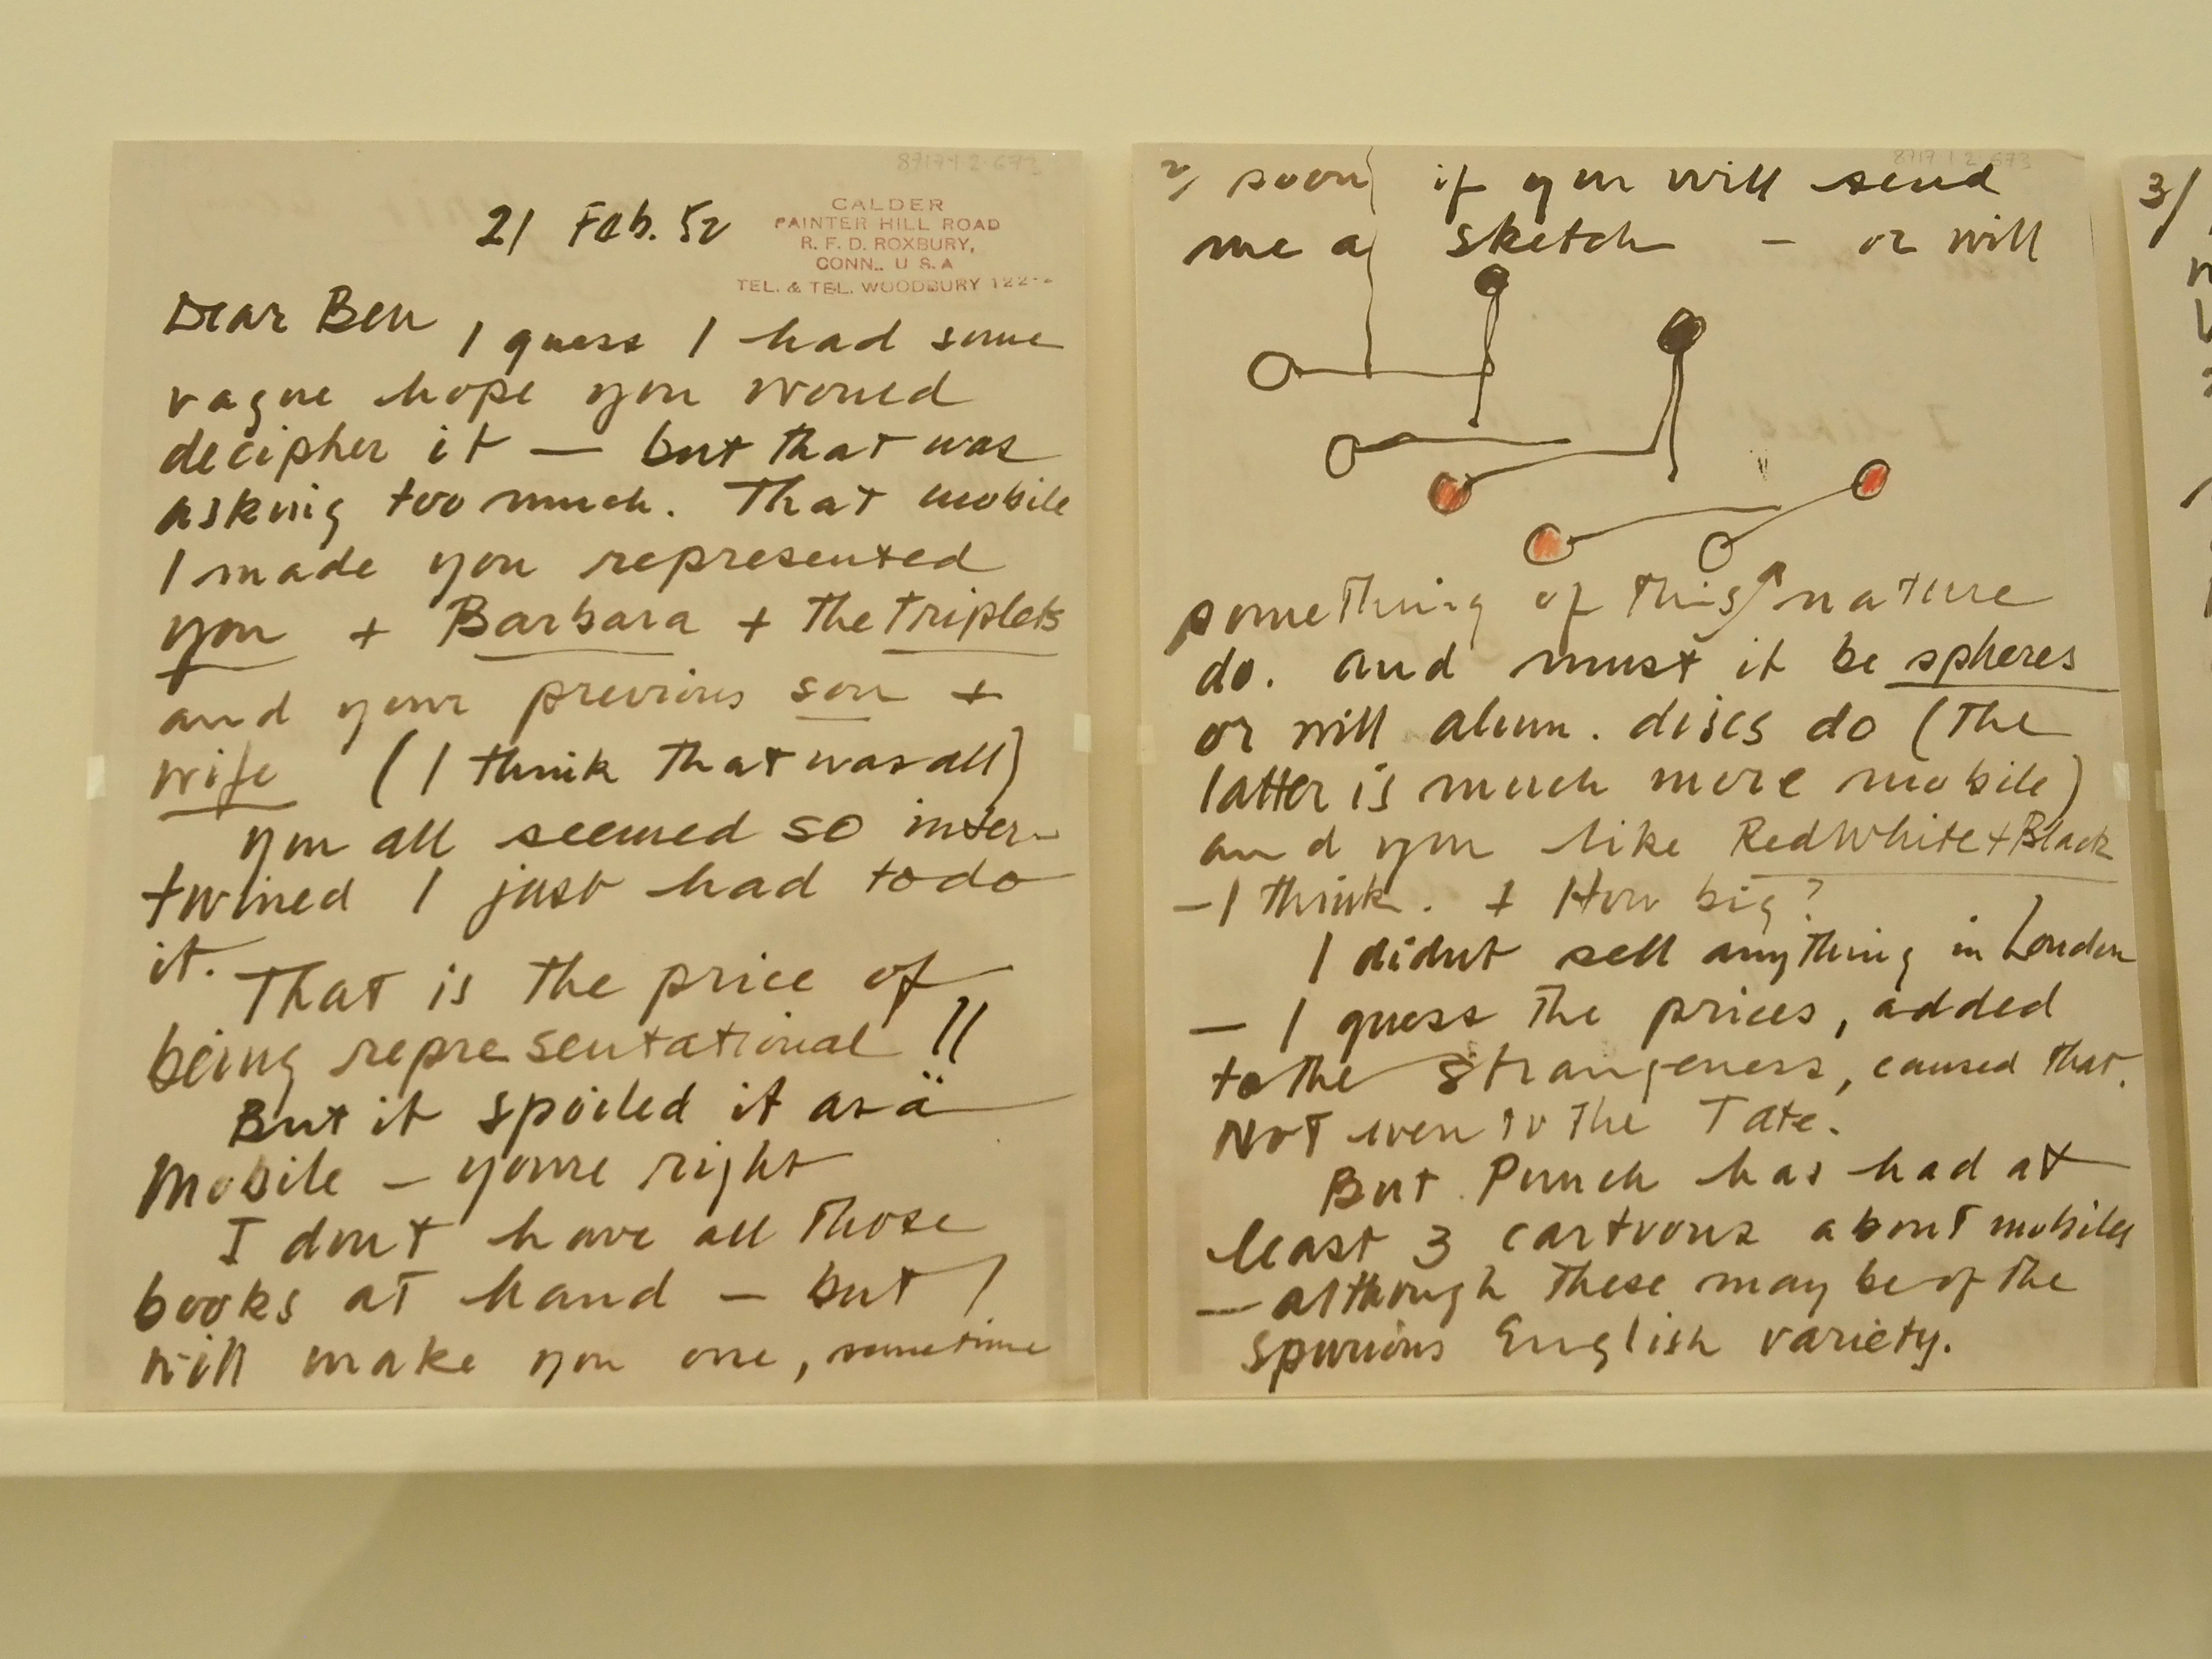 21 Feb. 52
CALDER
PAINTER HILL ROAD
R. F. D. ROXBURY,
CONN.. U S. A
TEL. & TEL. WOODBURY 122-2
Dear Ben
I guess I had some
vague hope you would
decipher it — but that was
asking too much. That mobile
I made you represented
you + Barbara + the triplets
and your previous son +
wife (I think that was all)
you all seemed so inter-
twined I just had to do
it.
That is the price of
being representational !!
But it spoiled it as a
Mobile – you're right
I dont have all those
books at hand – but I
will make you one, sometime
2/ soon if you will send
me a sketch – or will
something of this nature
do. and must it be spheres
or will alum. discs do (the
latter is much more mobile)
and you like Red White + Black
– I think. + How big?
I didnt sell anything in London
— I guess the prices, added
to the strangeness, caused that.
Not even to the Tate.
But Punch has had at
least 3 cartoons about mobiles
— although these may be of the
spurious English variety.
3/